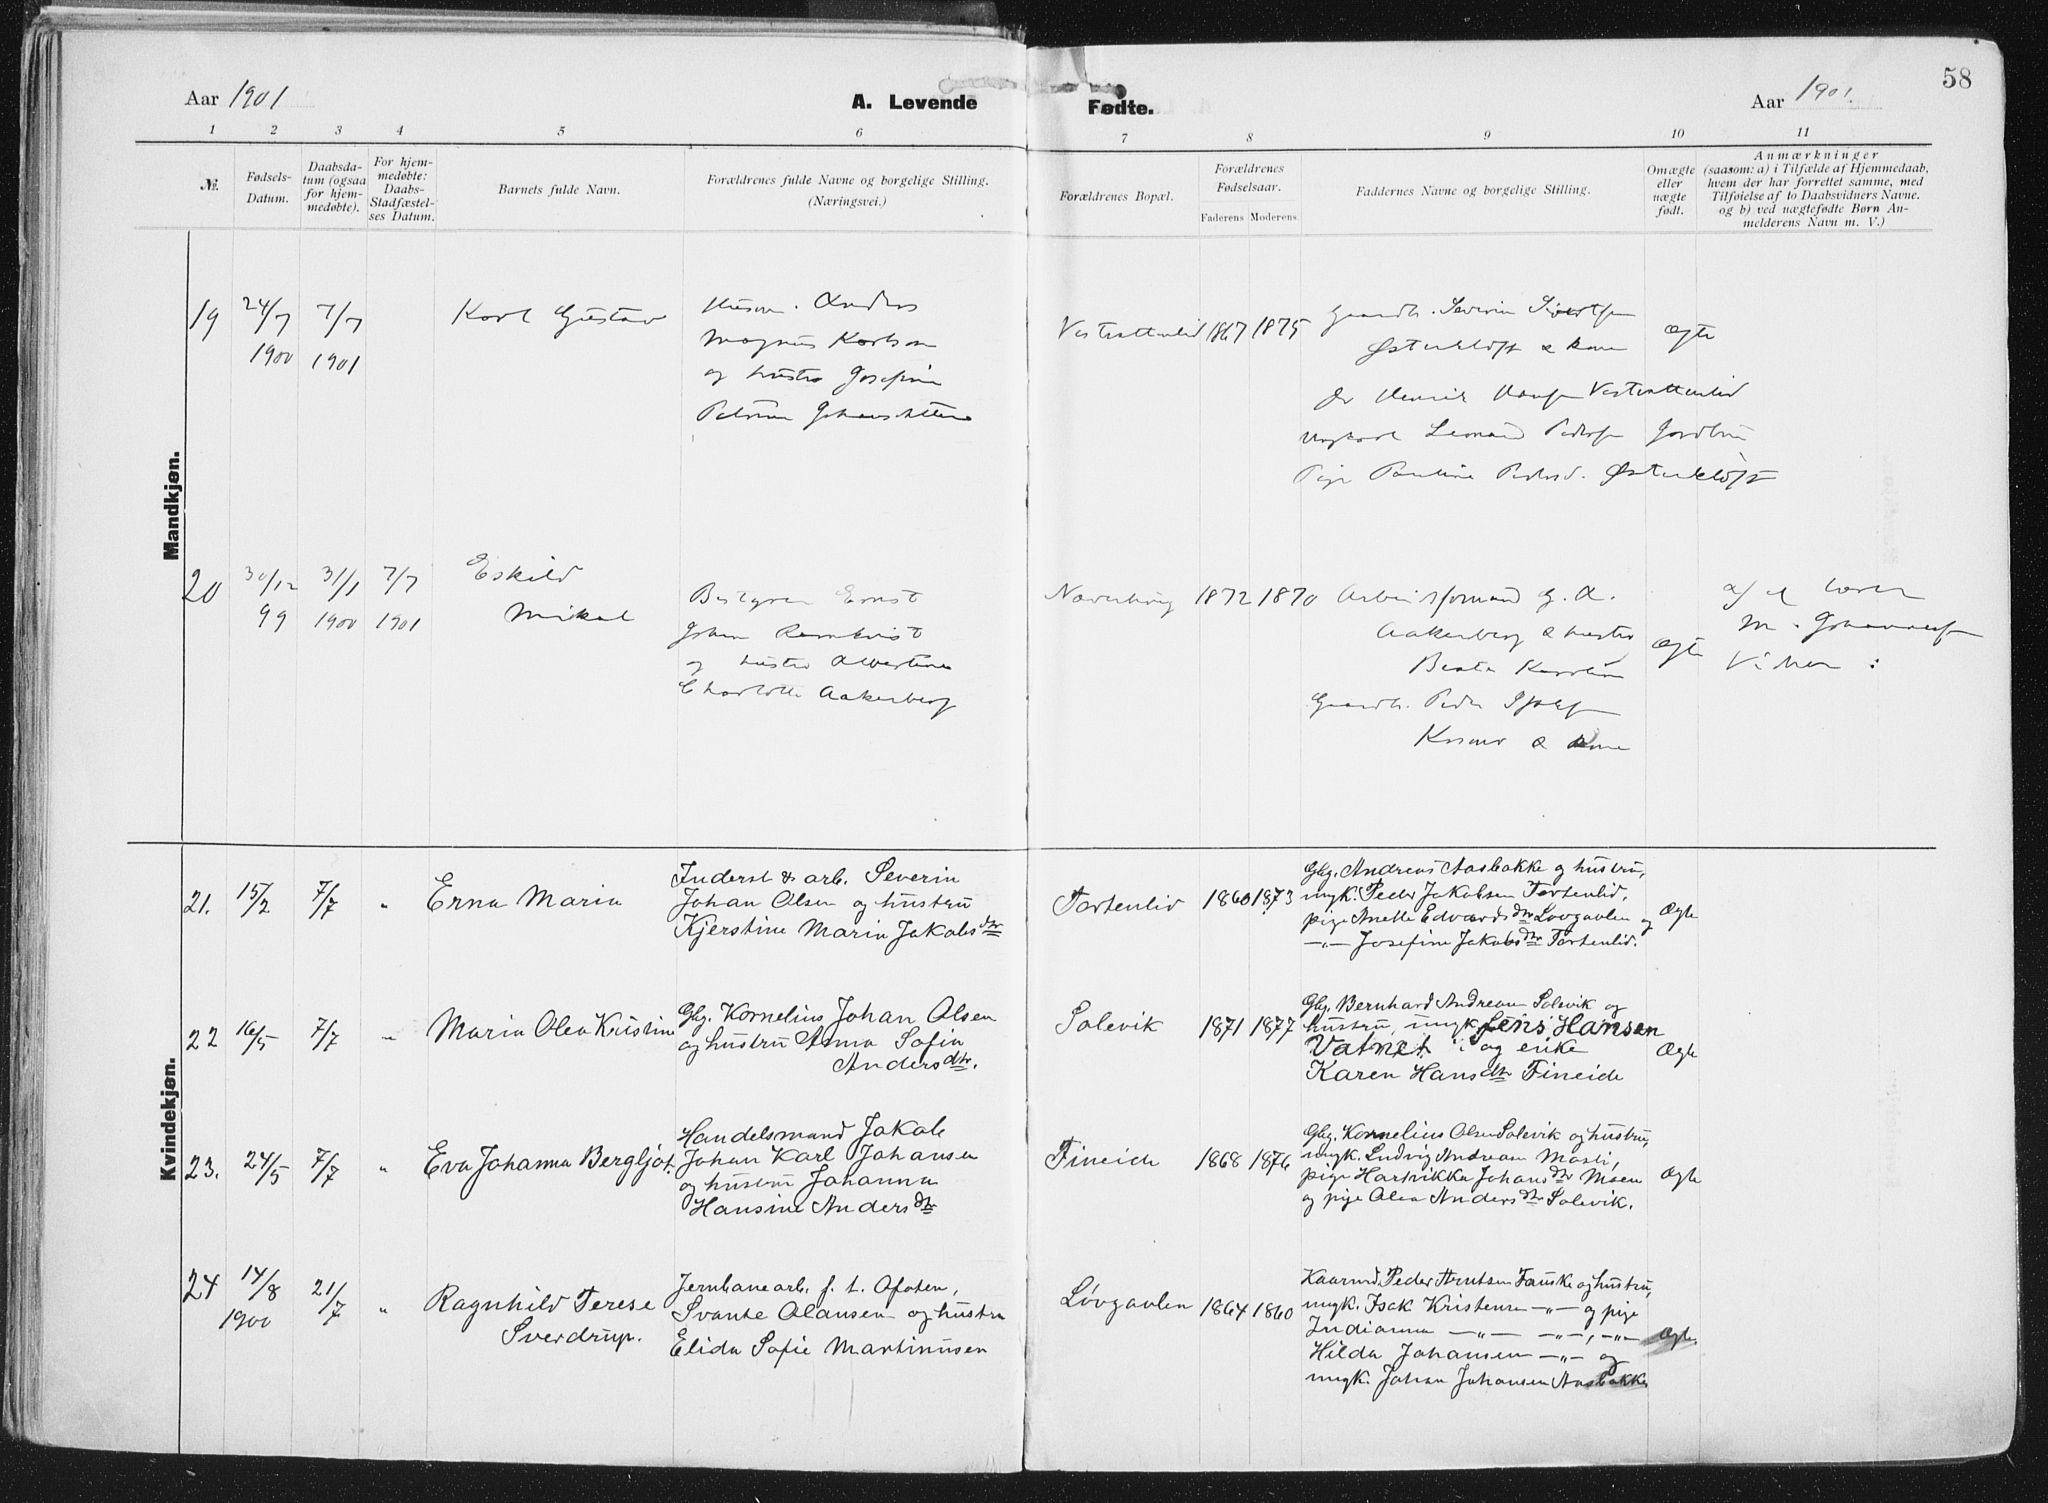 58
Aar 1901
A. Levende
Fødte.
Aar 1901.
1 2 3 4 5 6 7 8 9 10 11
№.
Fødsels-
Datum.
Daabsda-
tum (ogsaa
for hjem-
medøbte).
For hjem-
medøbte:
Daabs-
Stadfæstel-
ses Datum.
Barnets fulde Navn.
Forældrenes fulde Navne og borgelige Stilling.
(Næringsvei.)
Forældrenes Bopæl.
Forældrenes
Fødselsaar.
Faderens Moderens.
Faddernes Navne og borgelige Stilling.
Omægte
eller
uægte
født.
Anmærkninger
(saasom: a) i Tilfælde af Hjemmedaab,
hvem der har forrettet samme, med
Tilføielse af to Daabsvidners Navne.
og b) ved uægtefødte Børn An-
melderens Navn m. V.)
Mandkjøn.
19
24/7
1900
7/7
1901
Karl Gustav
Husm. Anders
Magnus Karlsen
og hustro Josefine
1867 1875
Gaardb. Severin
Østerkløft & kone
Henrik Hansen
Ungkarl Pedersen
Pige Pauline Pedersd. Østerkløft
Ægte
20
30/12
99
31/1
1900
7/7
1901
Eskild
Mikal
Bestyrer Ernst
Johan
og hustro Albertine
Charlotte Aakerberg
1872 1870
Arbeidsformand G. A.
Aakerberg & hustro
Beata
Gaardb. Peder
& kone
Ægte
af
M. Johannessen
Kvindekjøn.
21.
15/2
7/7
"
Erna Maria
Inderst & arb. Severin
Johan Olsen og hustru
Kjerstine Marin Jakobsdtr
Tortenlid
1860 1873
Gbg. Andreas Aasbakke og hustru,
ungk. Peder Jakobsen Tortenlid,
pige Anette Edvardsdtr Løvgavlen og
—"— Josefine Jakobsdtr Tortenlid.
Ægte
22
16/5
7/7
"
Maria Olea Kristine
Gbg. Kornelius Johan Olsen
og hustru Anna Sofia
Andersdtr.
Solevik
1871 1877
Gbg. Bernhard Andreasen Solevik og
hustru, ungk. Jens Hansen
Vatnet og enke
Karen Hansdtr Fineide
Ægte
23.
24/5
7/7
"
Eva Johanna Bergljot.
Handelsmand Jakob
Johan Karl Johansen
og hustru Johanna
Hansine Andersdtr
Fineide
1868 1876
Gbg. Kornelius Olsen Solevik og hustru,
ungk. Ludvig Andreasen Mosti,
pige Hartvikka Johansdtr Moen
og pige Olea Andersdtr Solevik.
Ægte
24
14/8
1900
21/7
"
Ragnhild Terese
Sverdrup.
Jernbanearb. f. t. Ofoten,
Svante Olausen og hustru
Elida Sofie Martinusen
Løvgavlen
1864 1860
Kaarmd. Peder Arntsen Fauske og hustru,
ungk. Isak Kristensen —"— og pige
Indianna —"— —"—, —"—
Hilda Johansen —"— og
ungk. Johan Johansen Aasbakke
Ægte.